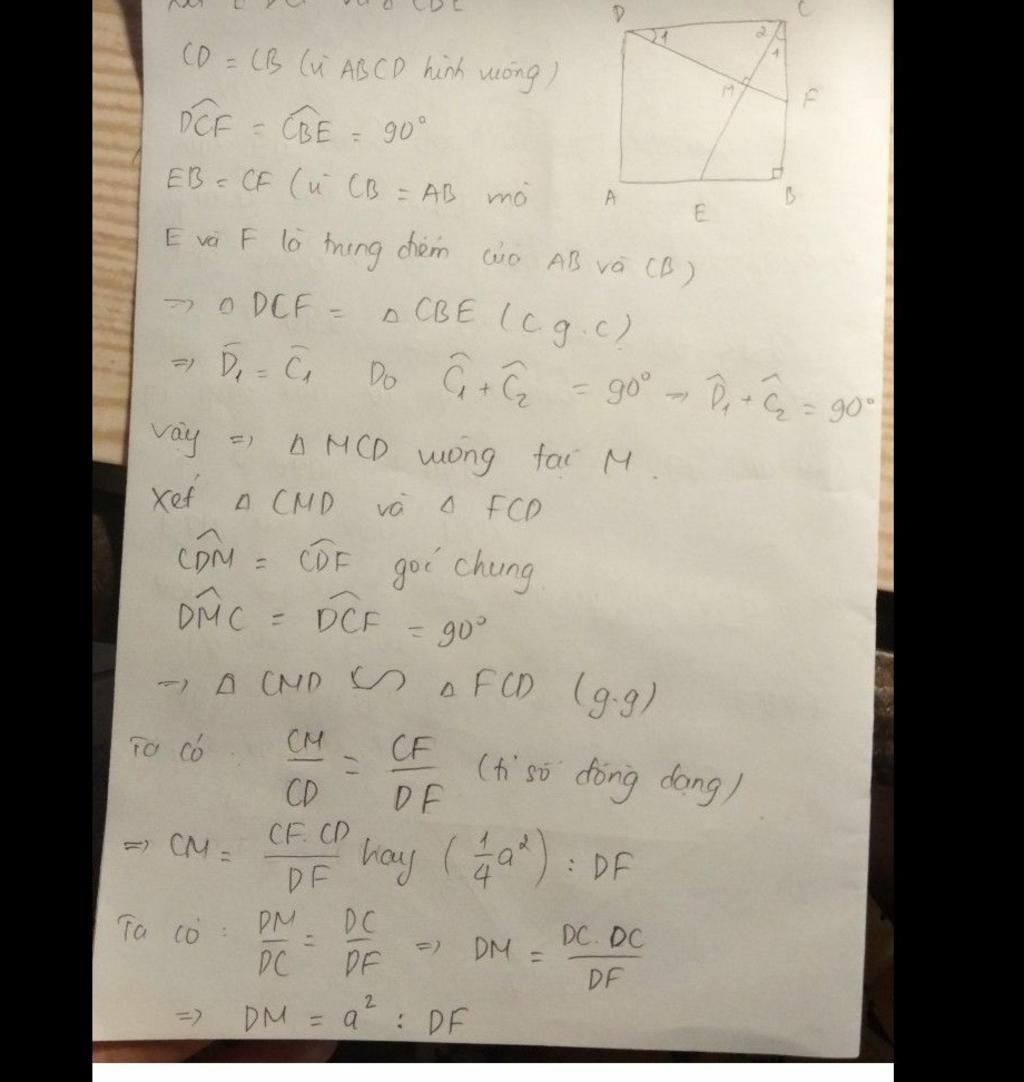 CD = CB (vì ABCD hình vuông)
D̂CF = ĈBE = 90°
EB = CF (vì CB = AB mà
E và F là trung điểm của AB và CB)
=> Δ DCF = Δ CBE (c.g.c)
=> D̂₁ = Ĉ₁ Do Ĉ₁ + Ĉ₂ = 90° => D̂₁ + Ĉ₂ = 90°
vậy => Δ MCD vuông tại M.
Xét Δ CMD và Δ FCD
CD̂M = CD̂F góc chung
DM̂C = DĈF = 90°
=> Δ CMD ∽ Δ FCD (g.g)
Ta có CM/CD = CF/DF (tỉ số đồng dạng)
=> CM = CF.CD/DF hay (1/4 a²) : DF
Ta có : DM/DC = DC/DF => DM = DC.DC/DF
=> DM = a² : DF
D
C
1
2
1
M
F
A
E
B